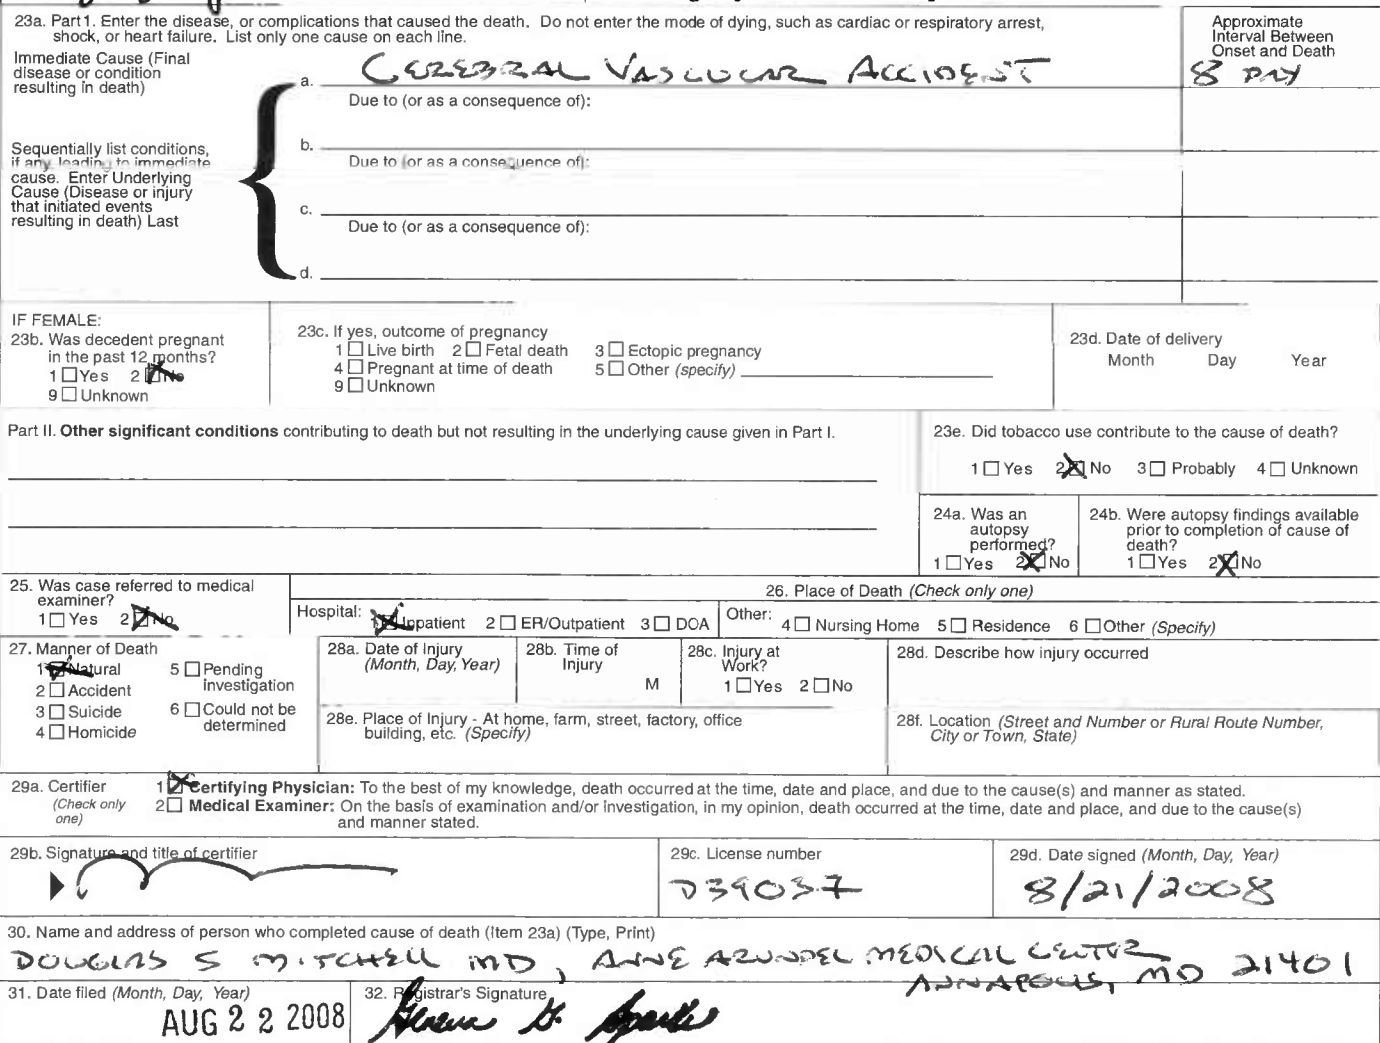 23a. Part 1. Enter the disease, or complications that caused the death. Do not enter the mode of dying, such as cardiac or respiratory arrest,
shock, or heart failure. List only one cause on each line.
Approximate
Interval Between
Onset and Death
Immediate Cause (Final
disease or condition
resulting in death)
a. CEREBRAL VASCULAR ACCIDENT
8 DAY
Due to (or as a consequence of):
Sequentially list conditions,
if any, leading to immediate
cause. Enter Underlying
Cause (Disease or injury
that initiated events
resulting in death) Last
b.
Due to (or as a consequence of):
c.
Due to (or as a consequence of):
d.
IF FEMALE:
23b. Was decedent pregnant
in the past 12 months?
1 Yes 2 No
9 Unknown
23c. If yes, outcome of pregnancy
1 Live birth 2 Fetal death 3 Ectopic pregnancy
4 Pregnant at time of death 5 Other (specify)
9 Unknown
23d. Date of delivery
Month Day Year
Part II. Other significant conditions contributing to death but not resulting in the underlying cause given in Part I.
23e. Did tobacco use contribute to the cause of death?
1 Yes 2 No 3 Probably 4 Unknown
24a. Was an
autopsy
performed?
1 Yes 2 No
24b. Were autopsy findings available
prior to completion of cause of
death?
1 Yes 2 No
25. Was case referred to medical
examiner?
1 Yes 2 No
26. Place of Death (Check only one)
Hospital: 1 Inpatient 2 ER/Outpatient 3 DOA Other: 4 Nursing Home 5 Residence 6 Other (Specify)
27. Manner of Death
1 Natural 5 Pending
investigation
2 Accident
3 Suicide 6 Could not be
determined
4 Homicide
28a. Date of Injury
(Month, Day, Year)
28b. Time of
Injury
M
28c. Injury at
Work?
1 Yes 2 No
28d. Describe how injury occurred
28e. Place of Injury - At home, farm, street, factory, office
building, etc. (Specify)
28f. Location (Street and Number or Rural Route Number,
City or Town, State)
29a. Certifier
(Check only
one)
1 Certifying Physician: To the best of my knowledge, death occurred at the time, date and place, and due to the cause(s) and manner as stated.
2 Medical Examiner: On the basis of examination and/or investigation, in my opinion, death occurred at the time, date and place, and due to the cause(s)
and manner stated.
29b. Signature and title of certifier
29c. License number
D39037
29d. Date signed (Month, Day, Year)
8/21/2008
30. Name and address of person who completed cause of death (Item 23a) (Type, Print)
DOUGLAS S MITCHELL MD, ANNE ARUNDEL MEDICAL CENTER
ANNAPOLIS, MD 21401
31. Date filed (Month, Day, Year)
AUG 22 2008
32. Registrar's Signature